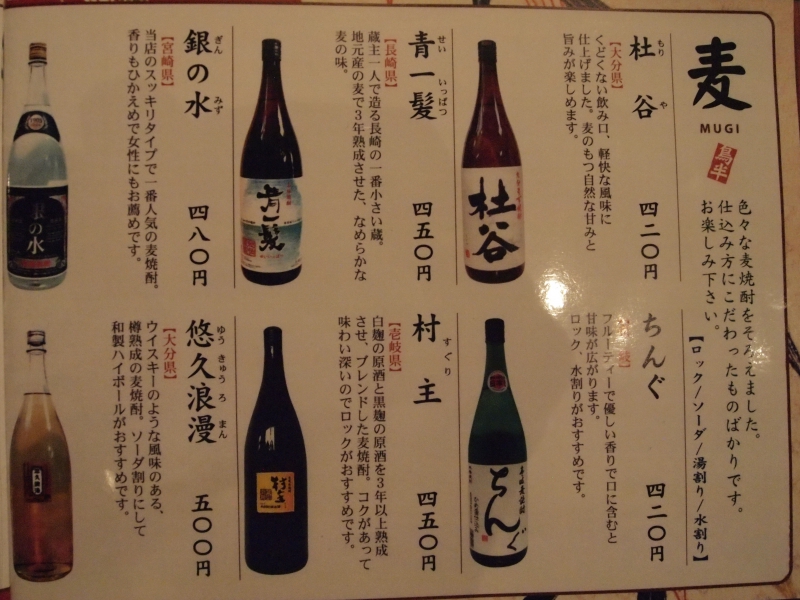 麦
MUGI
鳥半
色々な麦焼酎をそろえました。
仕込み方にこだわったものばかりです。
お楽しみ下さい。
【ロック/ソーダ/湯割り/水割り】
杜谷
もり や
四二〇円
【大分県】
くどくない飲み口、軽快な風味に
仕上げました。麦のもつ自然な甘みと
旨みが楽しめます。
杜谷
青一髪
せい いっぱつ
四五〇円
【長崎県】
蔵主一人で造る長崎の一番小さい蔵。
地元産の麦で3年熟成させた、なめらかな
麦の味。
青一髪
銀の水
ぎん みず
四八〇円
【宮崎県】
当店のスッキリタイプで一番人気の麦焼酎。
香りもひかえめで女性にもお薦めです。
銀の水
ちんぐ
四二〇円
フルーティーで優しい香りで口に含むと
甘味が広がります。
ロック、水割りがおすすめです。
ちんぐ
村主
すぐり
四五〇円
【壱岐県】
白麹の原酒と黒麹の原酒を3年以上熟成
させ、ブレンドした麦焼酎。コクがあって
味わい深いのでロックがおすすめです。
村主
悠久浪漫
ゆう きゅう ろ まん
五〇〇円
【大分県】
ウイスキーのような風味のある、
樽熟成の麦焼酎。ソーダ割りにして
和製ハイボールがおすすめです。